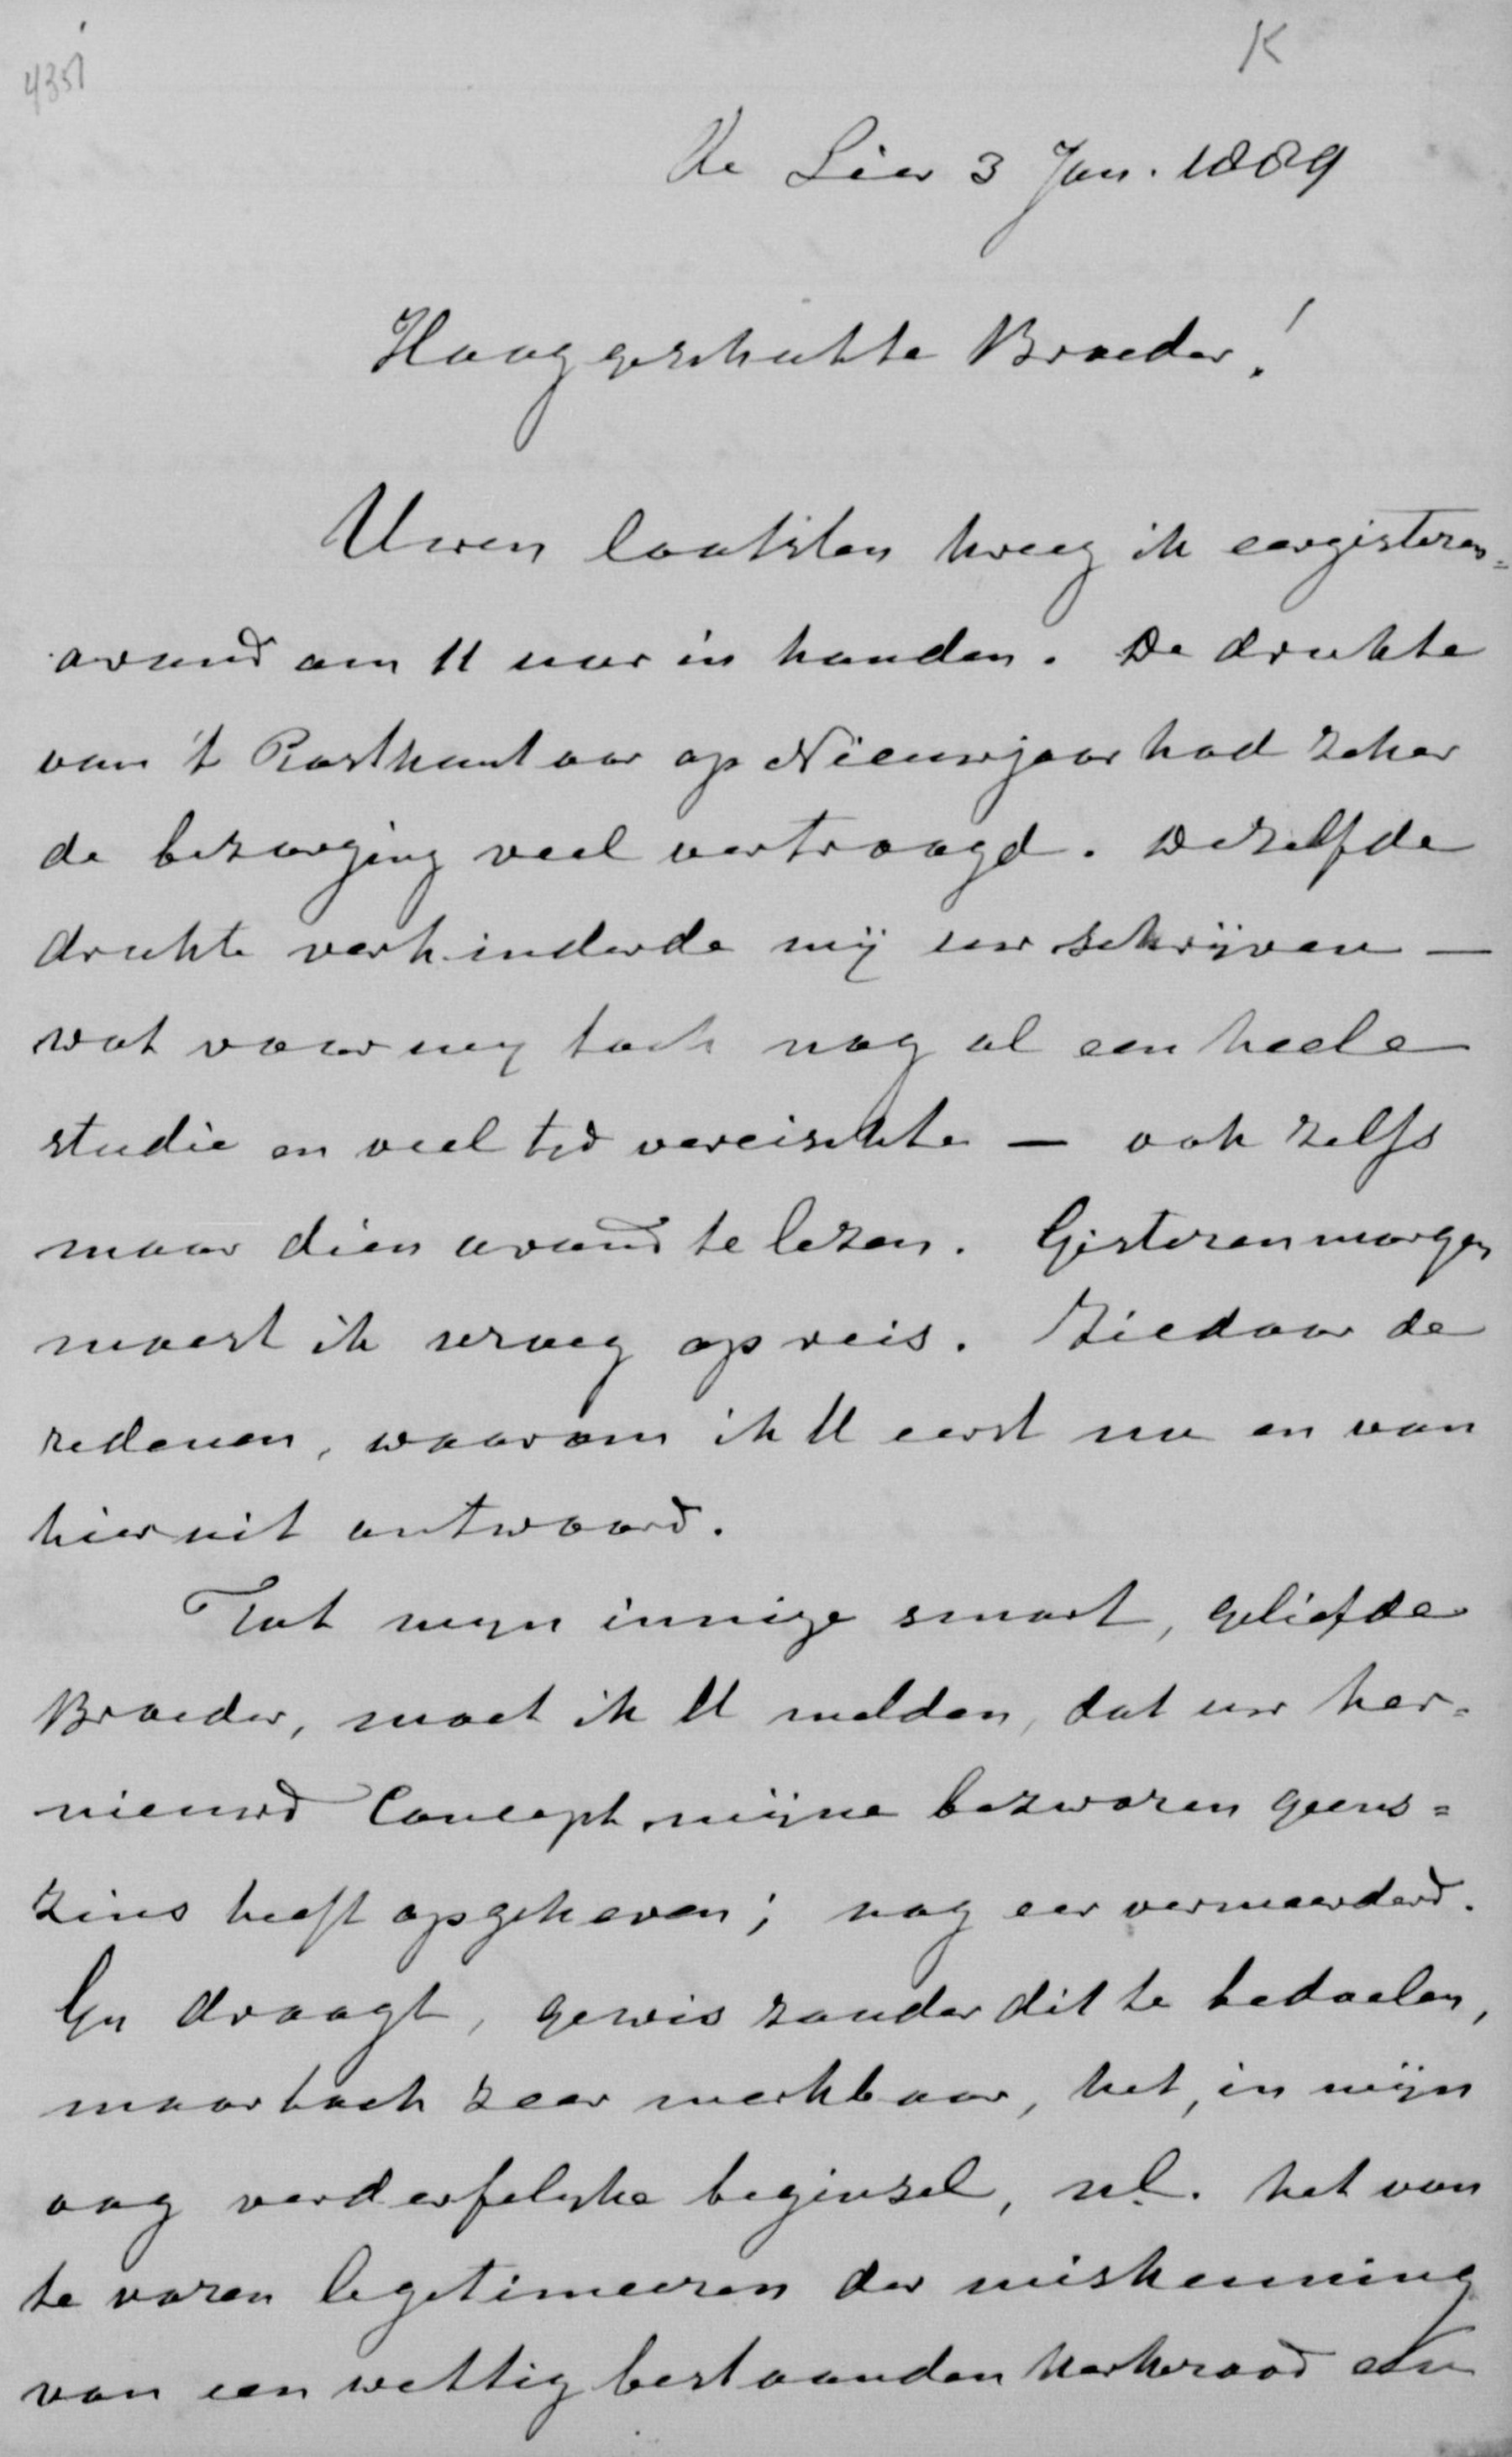 4351
K
De Lier 3 Jan. 1889
Hooggeschatte Broeder!
Uwen laatsten kreeg ik eergisteren=
avond om 11 uur in handen. De drukte
van 't Postkantoor op Nieuwjaar had zeker
de bezorging veel vertraagd. Dezelfde
drukte verhinderde mij uw schrijven —
wat voor mij toch nog al een heele
studie en veel tijd vereischte — ook zelfs
maar dien avond te lezen. Gisterenmorgen
moest ik vroeg op reis. Ziedaar de
redenen, waarom ik U eerst nu en van
hieruit antwoord.
Tot mijn innige smart, geliefde
Broeder, moet ik U melden, dat uw her=
nieuwd Concept mijne bezwaren geens=
zins heeft opgeheven; nog eer vermeerderd.
Gij draagt, gewis zonder dit te bedoelen,
maar toch zeer merkbaar, het, in mijn
oog verderfelijke beginsel, nl. het van
te voren legitimeeren der miskenning
van een wettig bestaanden kerkeraad